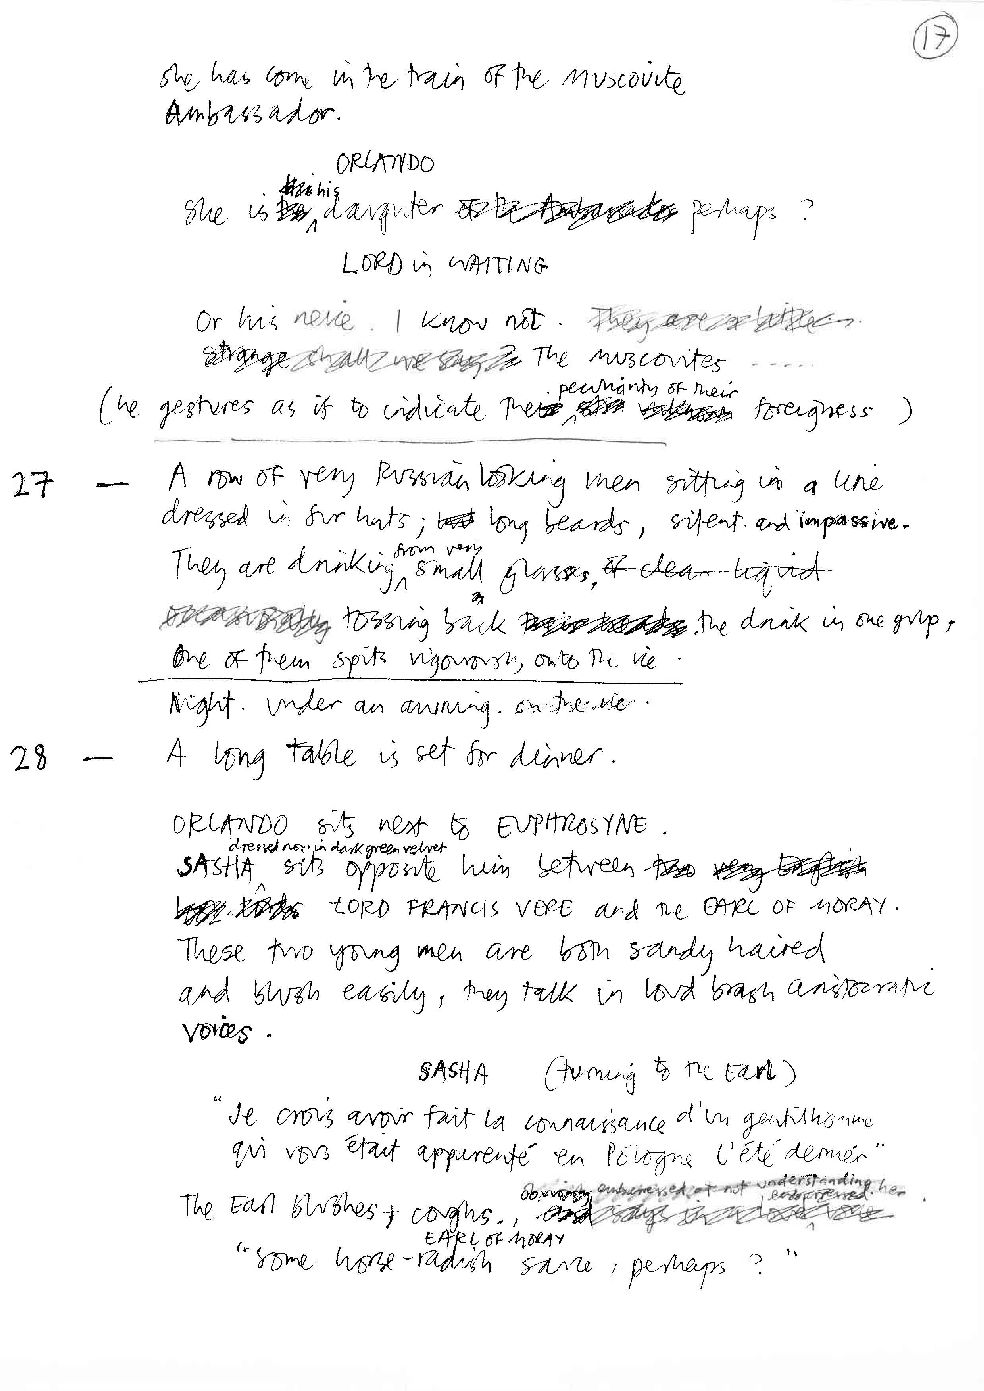 17
she has come in the train of the Muscovite
Ambassador.
ORLANDO
his
She is daughter perhaps ?
LORD in WAITING
Or his neice. I know not. They are a bit
strange shall we say? The Muscovites .....
peculiarity of their
(he gestures as if to indicate the foreigness )
27 — A row of very Russian looking men sitting in a line
dressed in fur hats; long beards, silent and impassive.
from very
They are drinking small glasses, of clear liquid
tossing back the drink in one gulp.
One of them spits vigorously onto the ice.
Night. Under an awning. on the ice.
28 — A long table is set for dinner.
ORLANDO sits next to EUPHROSYNE.
dressed now in dark green velvet
SASHA sits opposite him between two very English
LORD FRANCIS VERE and the EARL OF MORAY.
These two young men are both sandy haired
and blush easily, they talk in loud brash aristocratic
voices.
SASHA (turning to the Earl)
"Je crois avoir fait la connaissance d'un gentilhomme
qui vous était apparenté en Pologne l'été dernier"
Obviously embarressed at not understanding her
embarressed.
The Earl blushes & coughs., and says
EARL OF MORAY
"Some horse-radish sauce, perhaps ? "